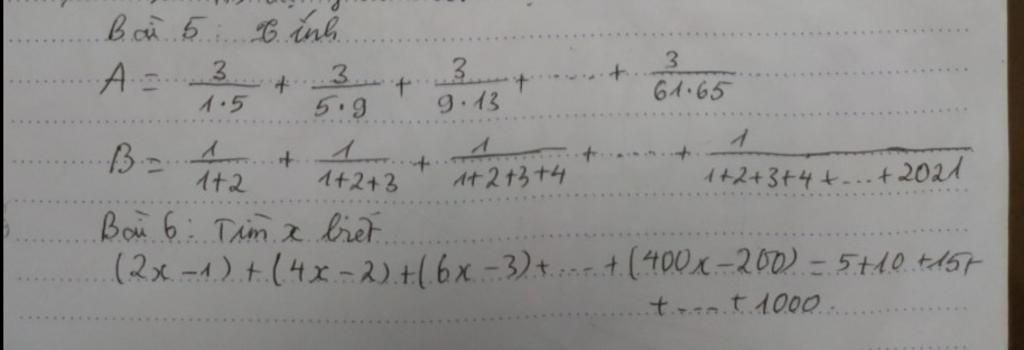 Bài 5: Tính
A = 3/1·5 + 3/5·9 + 3/9·13 + ..... + 3/61·65
B = 1/1+2 + 1/1+2+3 + 1/1+2+3+4 + ..... + 1/1+2+3+4+...+2021
Bài 6: Tìm x biết
(2x-1)+(4x-2)+(6x-3)+....+(400x-200) = 5+10+15+
+....+1000